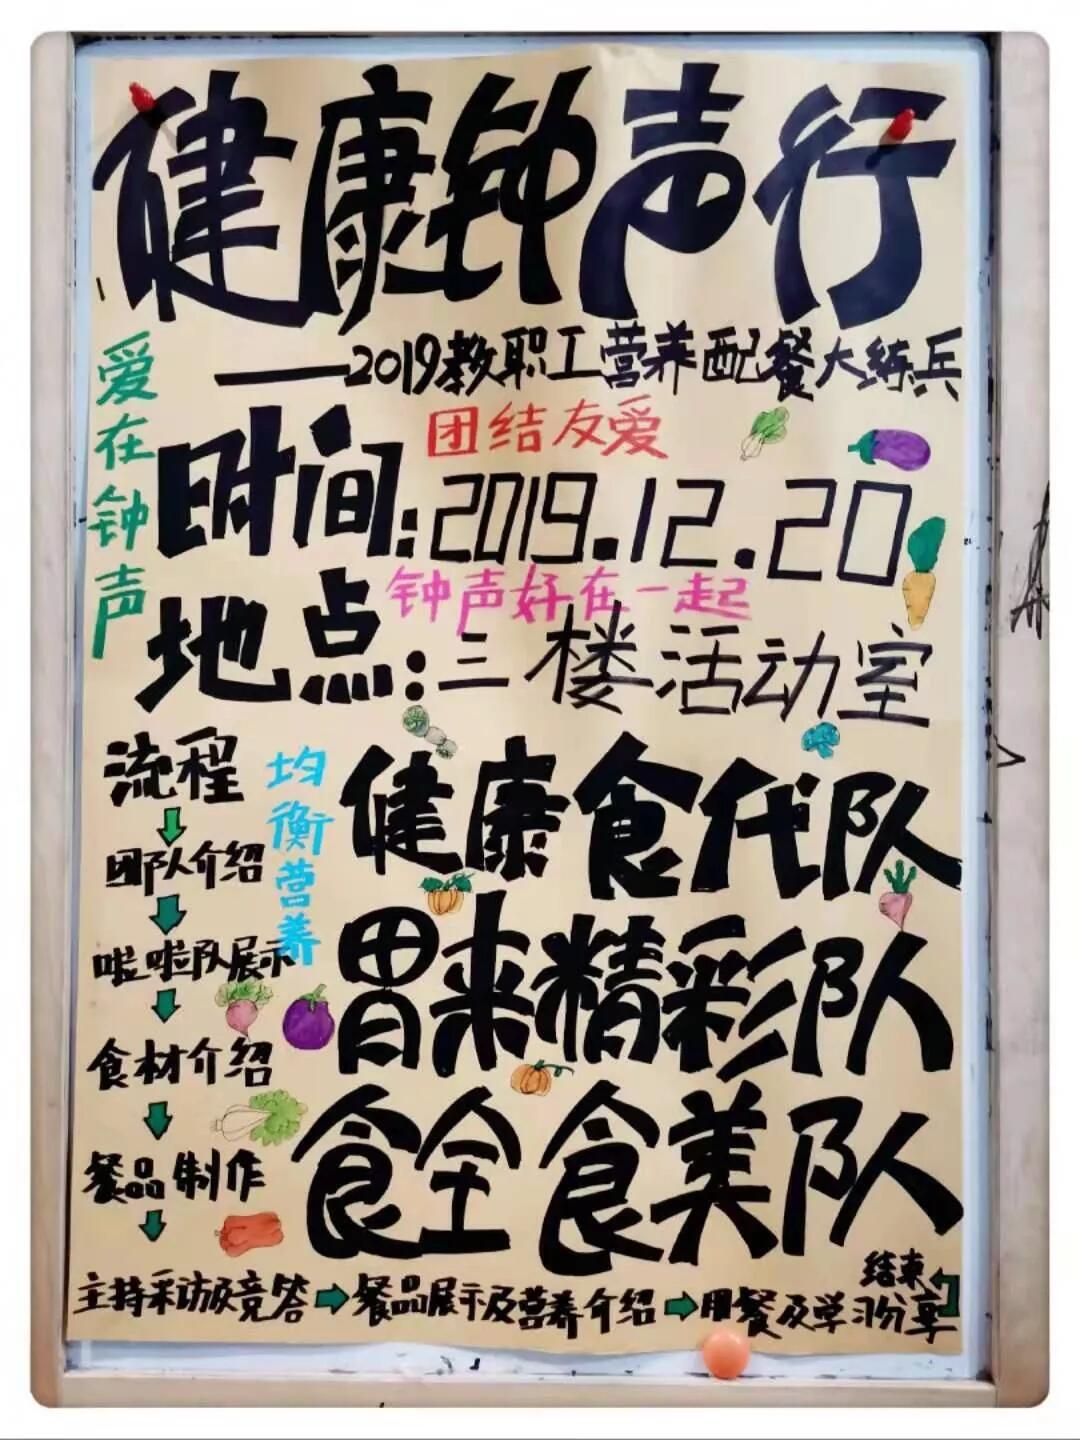 健康钟声行
——2019教职工营养配餐大练兵
爱在钟声
团结友爱
时间:2019.12.20
钟声好在一起
地点:三楼活动室
流程
均衡营养
健康食代队
团队介绍
啦啦队展示
胃来精彩队
食材介绍
食全食美队
餐品制作
主持采访及竞答
餐品展示及营养介绍
用餐及学习分享
结束